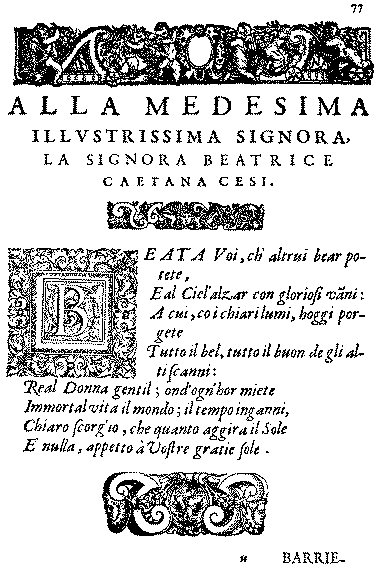 77
ALLA MEDESIMA
ILLVSTRISSIMA SIGNORA,
LA SIGNORA BEATRICE
CAETANA CESI.
BEATA Voi, ch'altrui bear po-
tete,
E al Ciel'alzar con gloriosi vãni:
A cui, co i chiari lumi, hoggi por-
gete
Tutto il bel, tutto il buon de gli al-
ti scanni:
Real Donna gentil; ond'ogn'hor miete
Immortal vita il mondo; il tempo inganni,
Chiaro scorg'io, che quanto aggira il Sole
E nulla, appetto à Vostre gratie sole.
BARRIE-